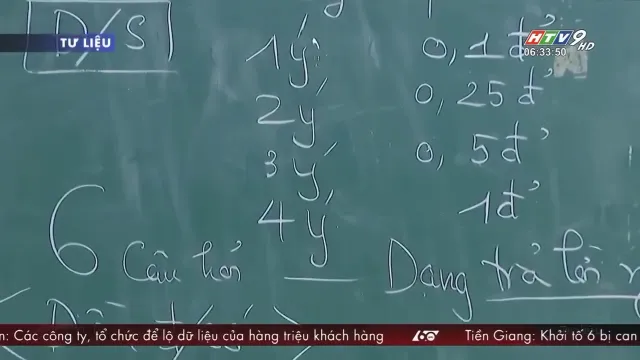 TƯ LIỆU
HTV9 HD
06:33:50
Đ/S
1 ý 0,1 đ
2 ý 0,25 đ
3 ý 0,5 đ
4 ý 1 đ
6 Câu hỏi — Dạng trả lời
n: Các công ty, tổ chức để lộ dữ liệu của hàng triệu khách hàng 60 Tiền Giang: Khởi tố 6 bị can